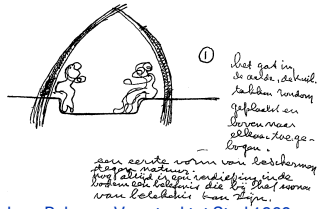 1
het gat in
de aarde, de kuil.
takken rondom
geplaatst en
boven naar
elkaar toe ge-
bogen.
een eerste vorm van bescherming
tegen natuur.
nog altijd is een verdieping in de
bodem een betekenis die bij het wonen
van betekenis kan zijn.